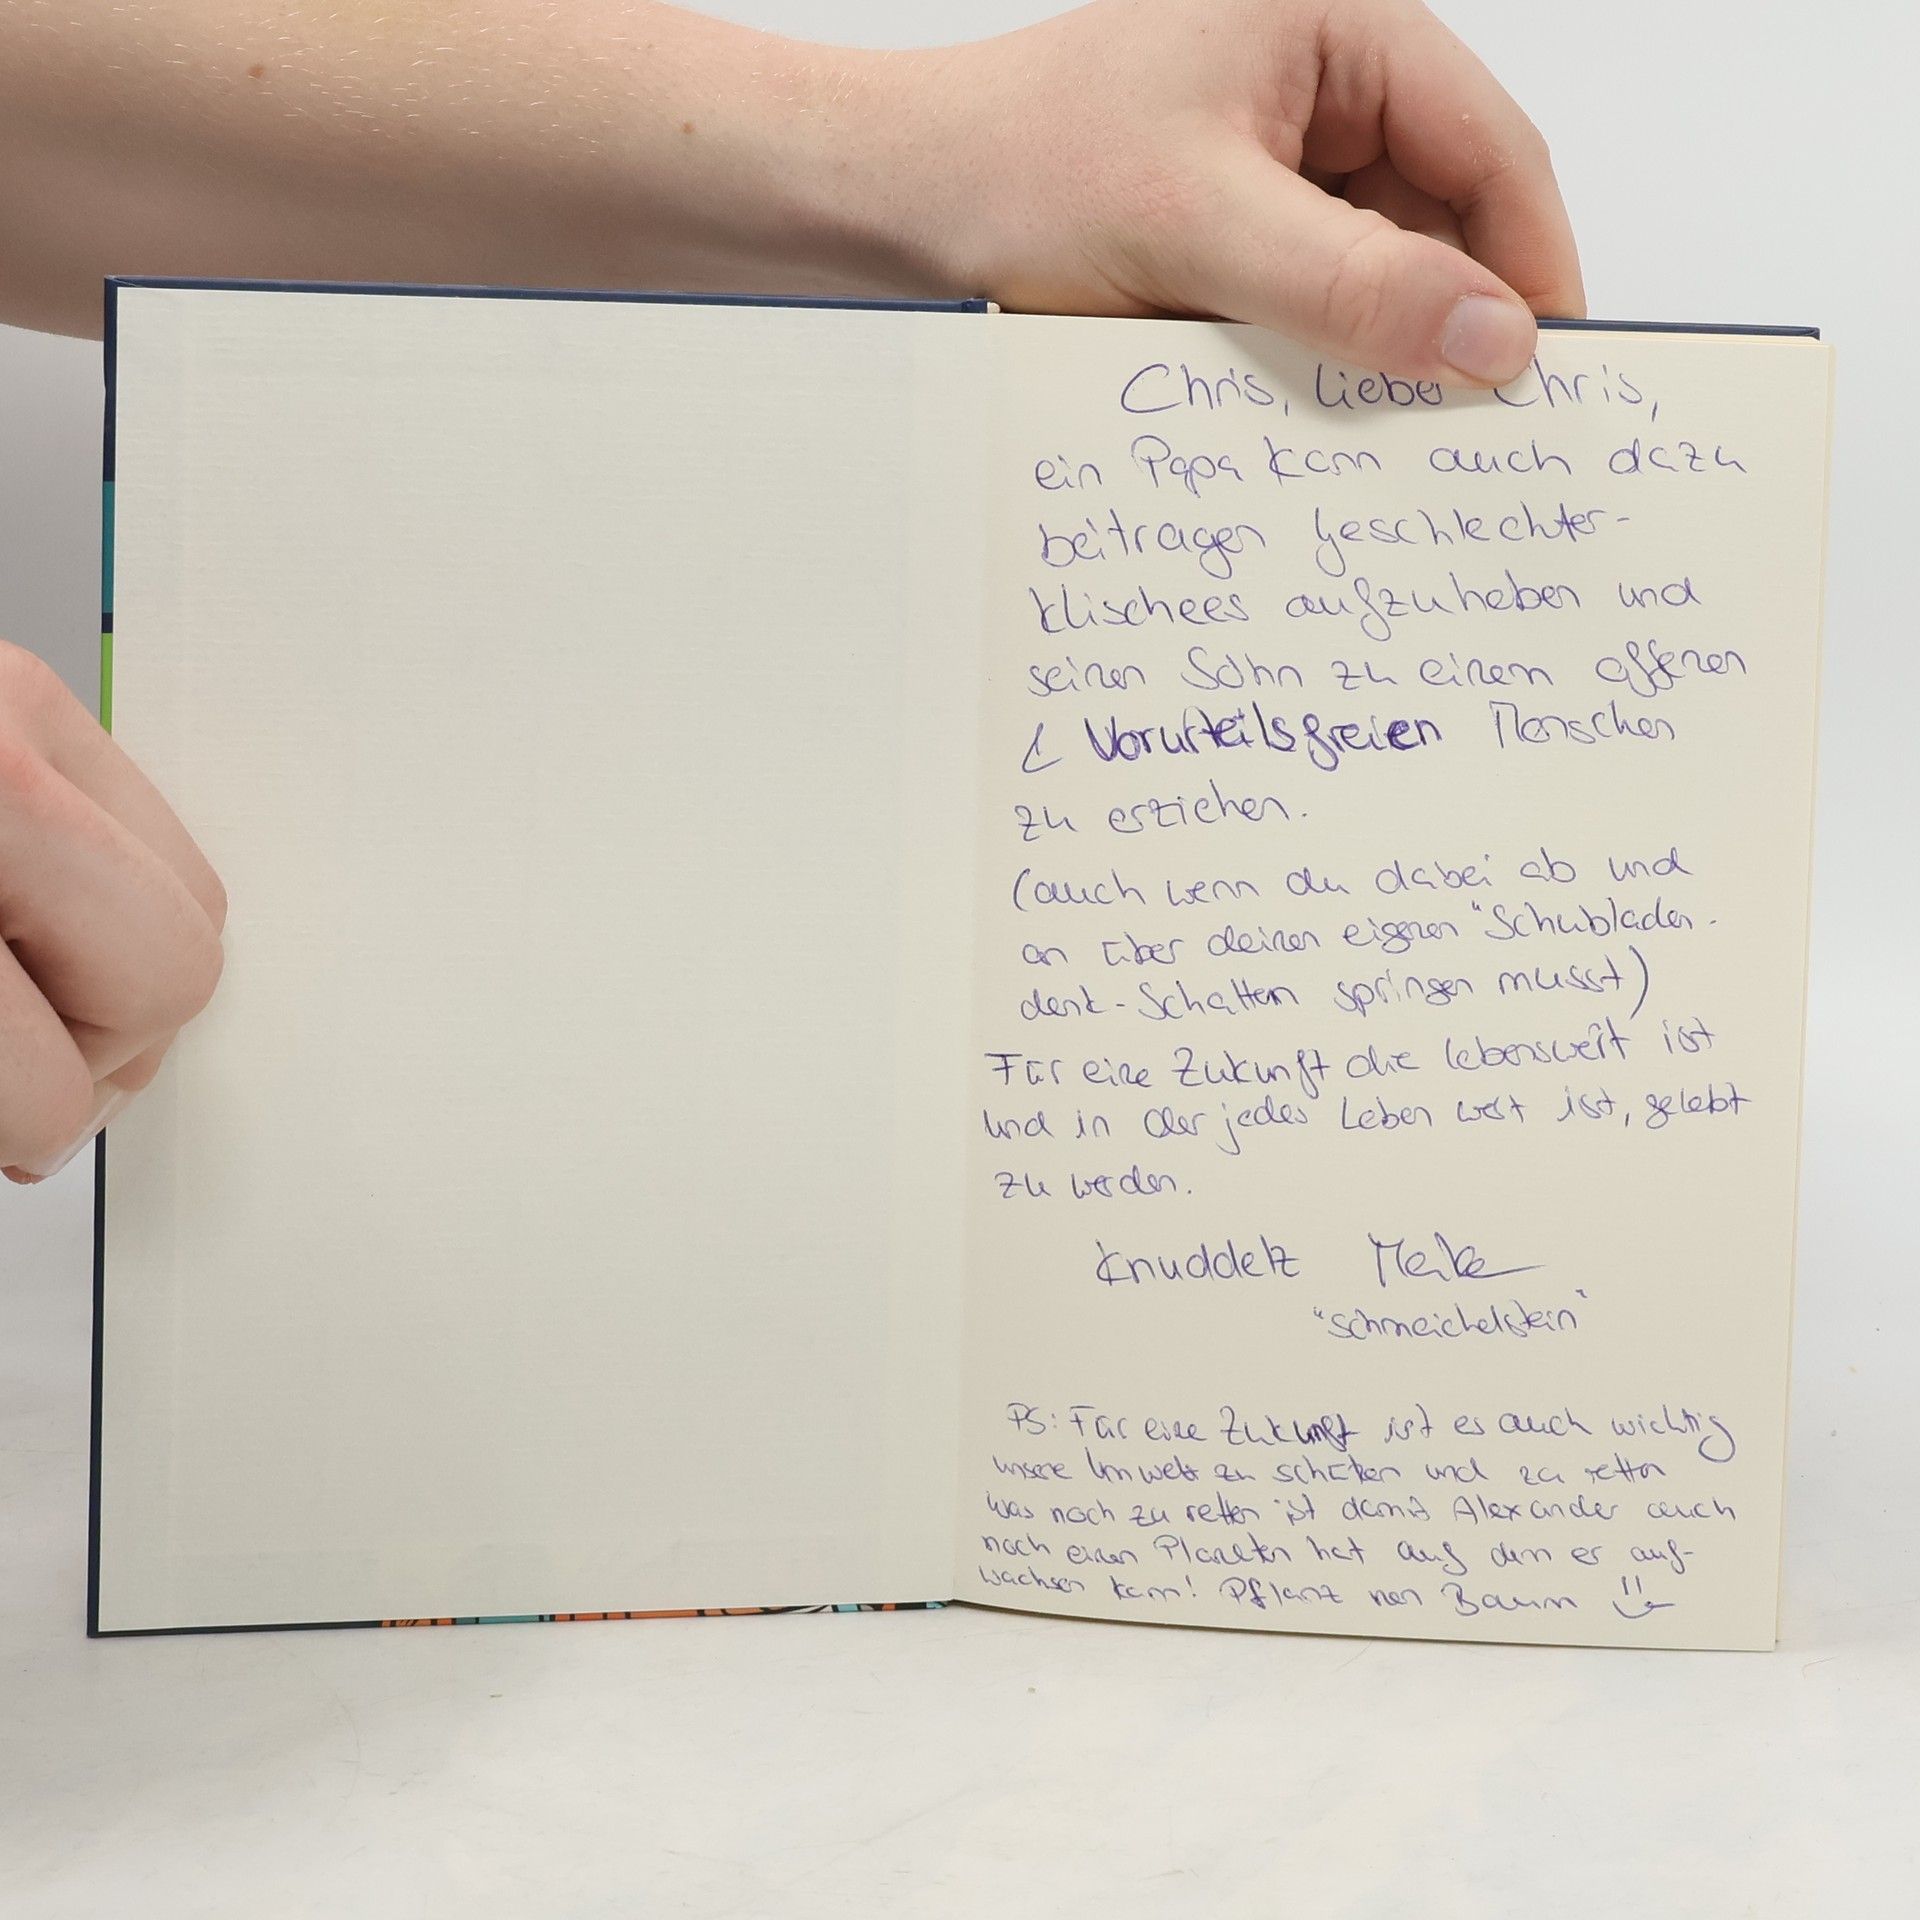 Chris, lieber Chris,
ein Papa kann auch dazu
beitragen Geschlechter-
klischees aufzuheben und
seinen Sohn zu einem offenen
& Vorurteilsfreien Menschen
zu erziehen.
(auch wenn du dabei ab und
an über deinen eigenen "Schubladen-
denk-Schatten springen musst)
Für eine Zukunft die lebenswert ist
und in der jedes Leben wert ist, gelebt
zu werden.
Knuddelz Meike
"Schmeichelstein"
PS: Für eine Zukunft ist es auch wichtig
unsere Umwelt zu schützen und zu retten
was noch zu retten ist damit Alexander auch
noch einen Planeten hat auf dem er auf-
wachsen kann! Pflanz nen Baum